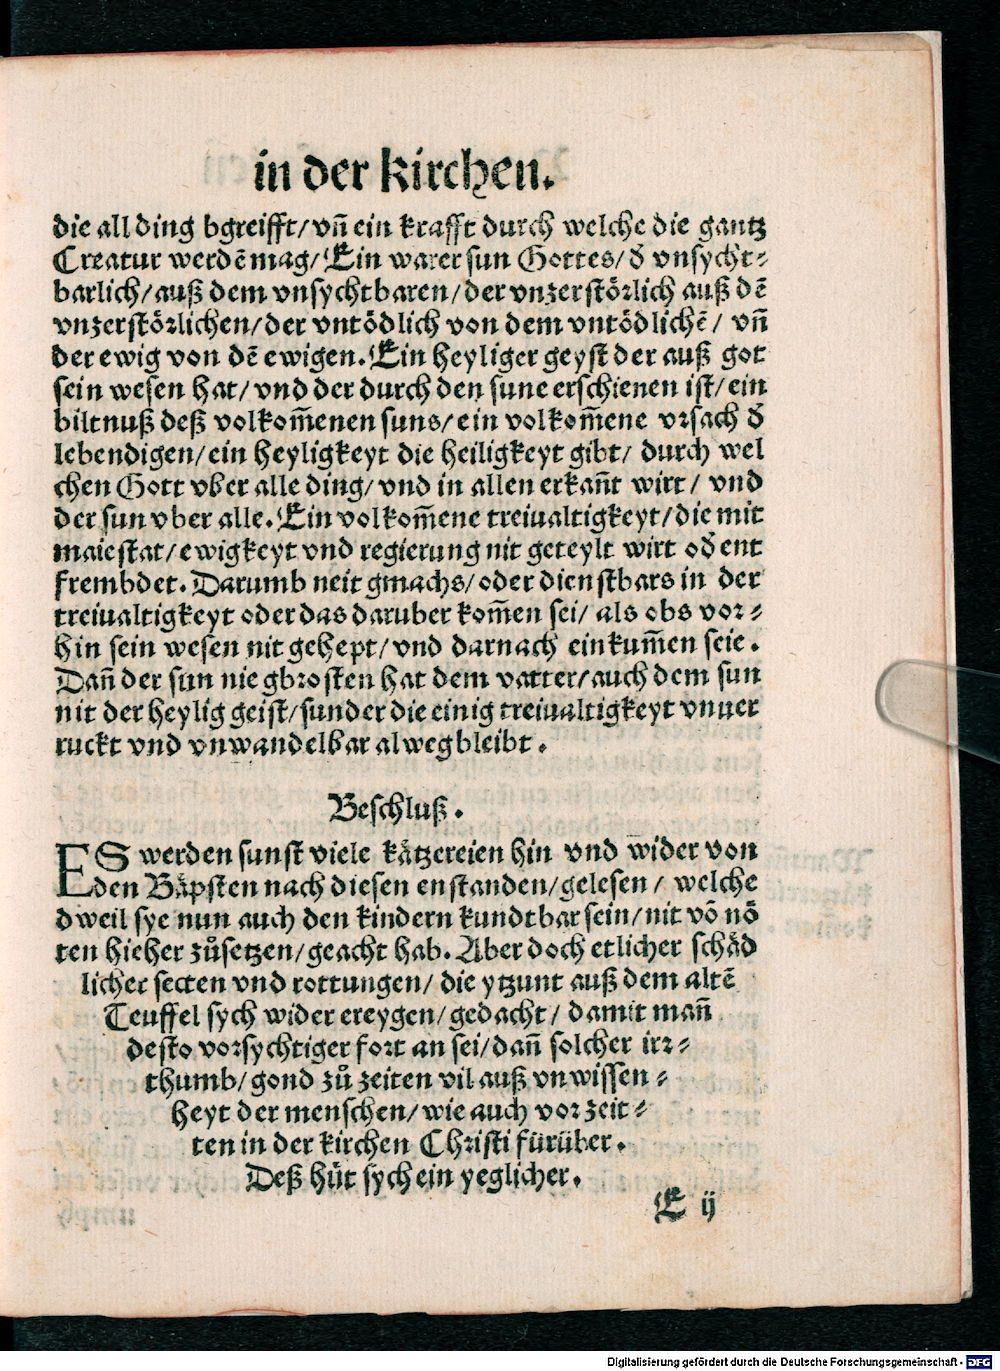 in der kirchen.
die all ding bgreifft/ vñ ein krafft durch welche die gantz
Creatur werdẽ mag/ Ein warer sun Gottes/ d̕ vnsycht⸗
barlich/ auß dem vnsychtbaren/ der vnzerstörlich auß dẽ
vnzerstörlichen/ der vntödlich von dem vntödlichẽ/ vñ
der ewig von dẽ ewigen. Ein heyliger geyst der auß got
sein wesen hat/ vnd der durch den sune erschienen ist/ ein
biltnuß deß volkom̃enen suns/ ein volkom̃ene vrsach d̕
lebendigen/ ein heyligkeyt die heiligkeyt gibt/ durch wel
chen Gott vber alle ding/ vnd in allen erkañt wirt/ vnd
der sun vber alle. Ein volkom̃ene treiualtigkeyt/ die mit
maiestat/ ewigkeyt vnd regierung nit geteylt wirt od̕ ent
frembdet. Darumb neit gmachs/ oder dienstbars in der
treiualtigkeyt oder das daruber kom̃en sei/ als obs vor⸗
hin sein wesen nit gehept/ vnd darnach einkum̃en seie.
Dañ der sun nie gbrosten hat dem vatter/ auch dem sun
nit der heylig geist/ sunder die einig treiualtigkeyt vnuer
ruckt vnd vnwandelbar alweg bleibt.
Beschluß.
ES werden sunst viele kätzereien hin vnd wider von
den Bäpsten nach diesen enstanden/ gelesen/ welche
dweil sye nun auch den kindern kundtbar sein/ nit võ nö
ten hieher zůsetzen/ geacht hab. Aber doch etlicher schäd
licher secten vnd rottungen/ die ytzunt auß dem altẽ
Teuffel sych wider ereygen/ gedacht/ damit mañ
desto vorsychtiger fort an sei/ dañ solcher irr⸗
thumb/ gond zů zeiten vil auß vnwissen⸗
heyt der menschen/ wie auch vor zeit⸗
ten in der kirchen Christi fürüber.
Deß hüt sych ein yeglicher.
E ij
Digitalisierung gefördert durch die Deutsche Forschungsgemeinschaft - DFG